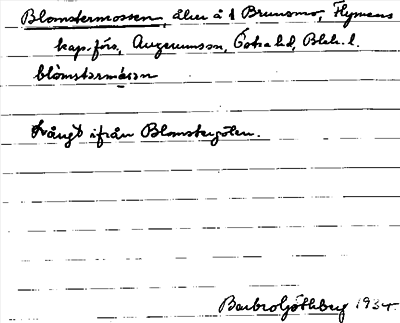 Blomstermossen, äker å 1 Brunsmo, Flymens
kap.förs, Augerumssn, Östra hd, Blek. l.
blòmstarmåsan
Långt ifrån Blomstergölen.
Barbro Göthberg 1934.